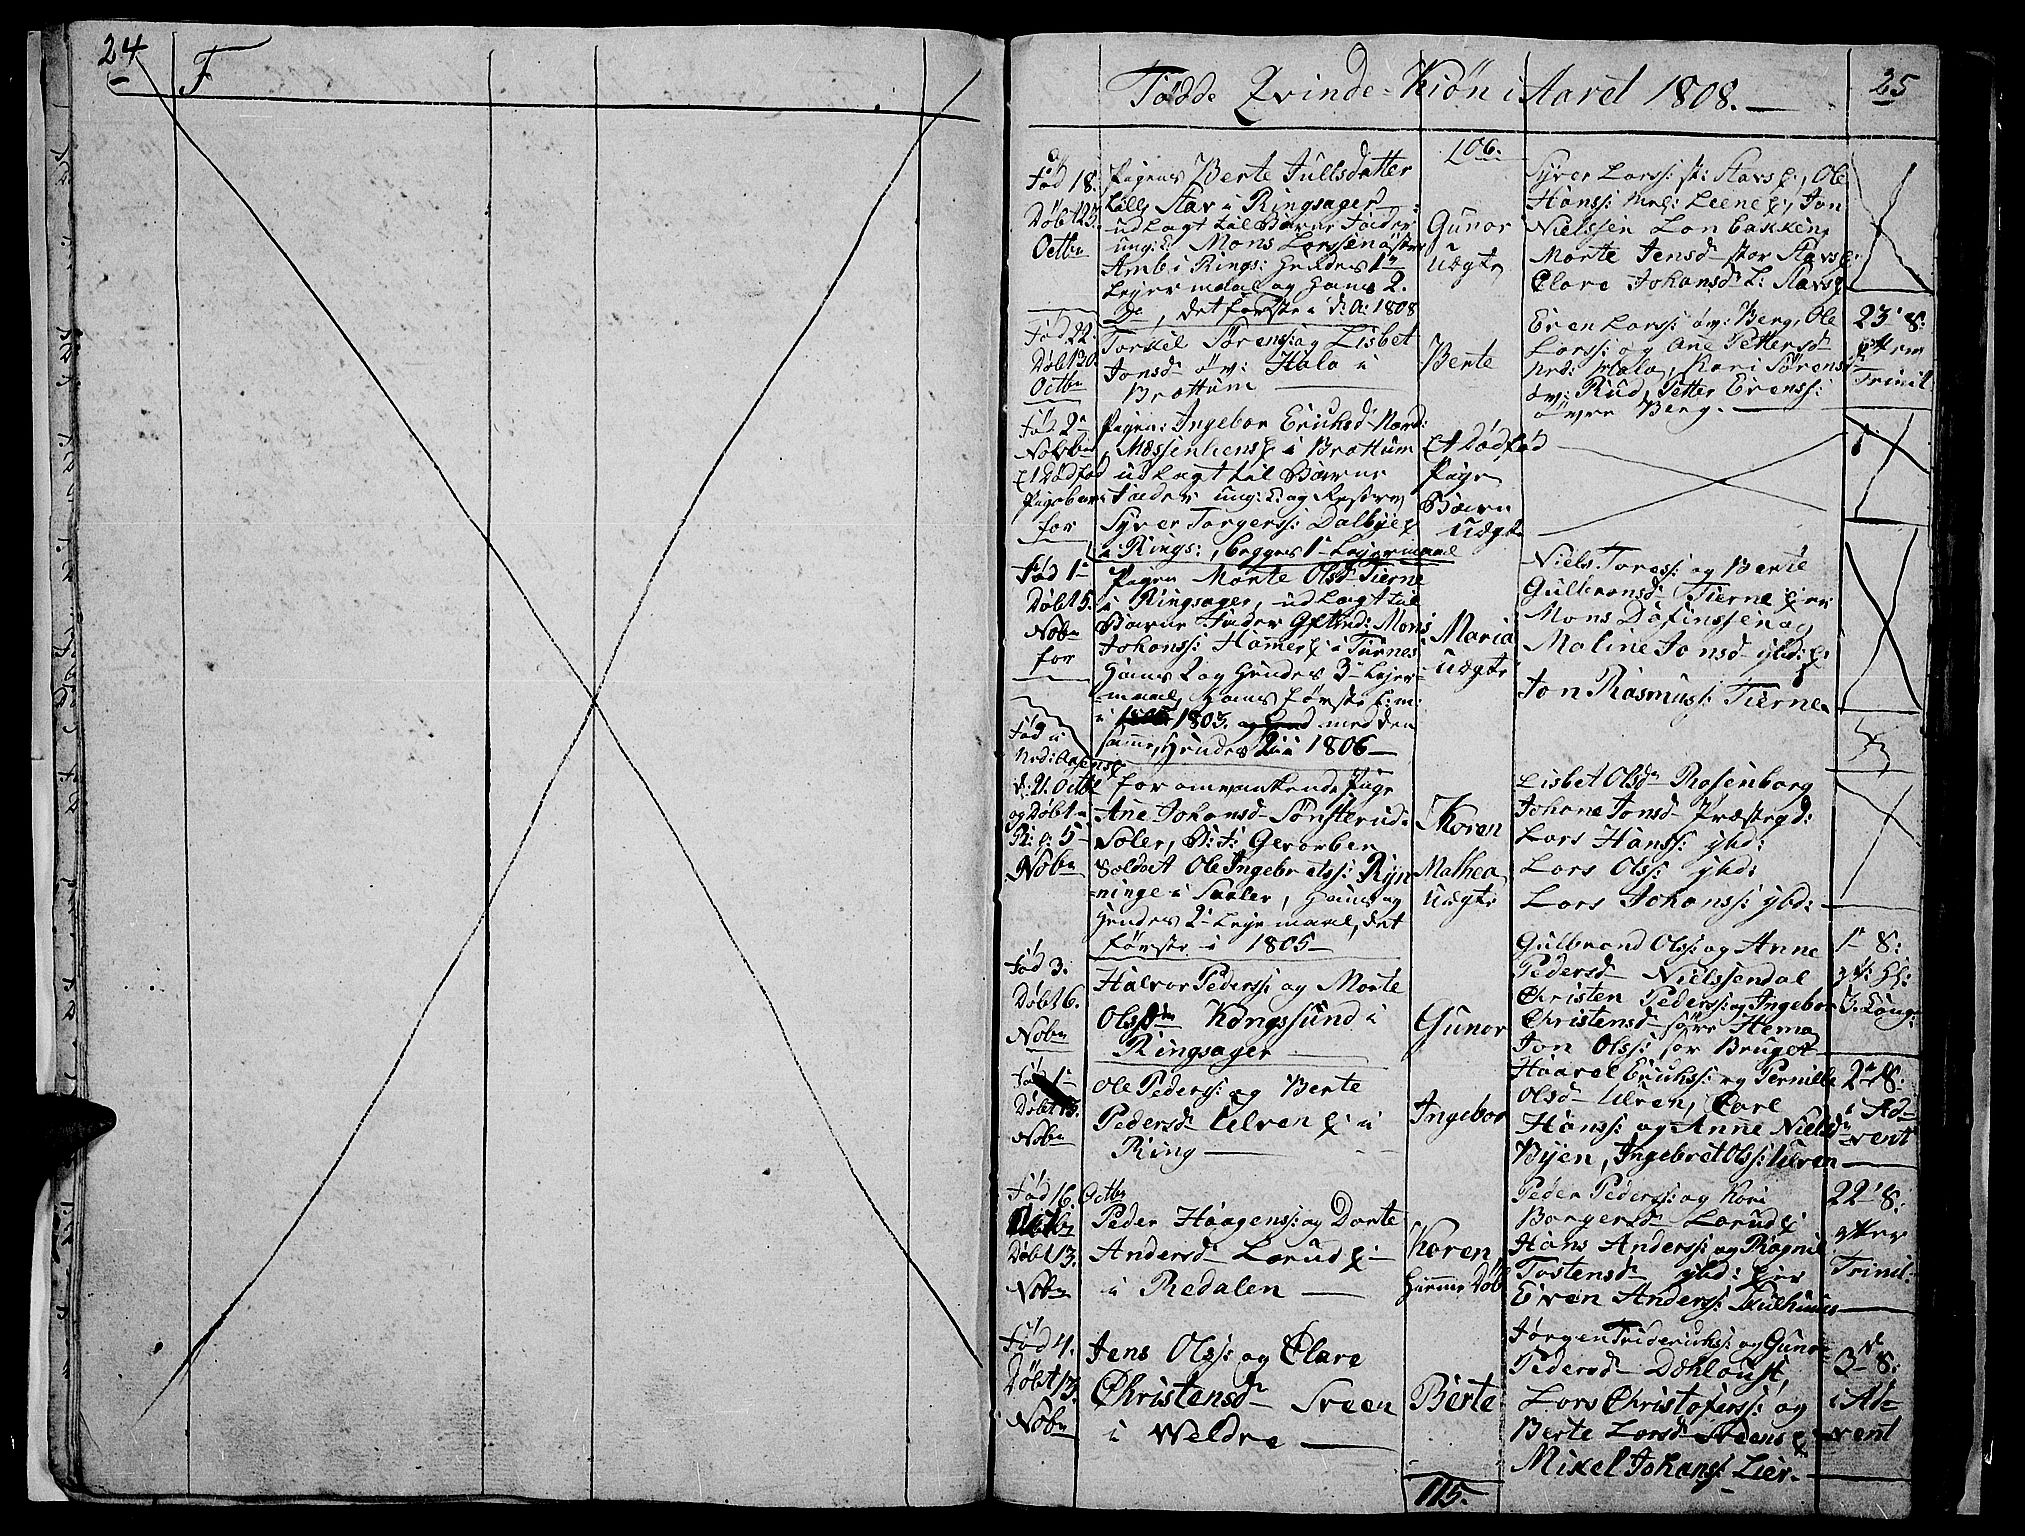 24
F
Fødde Qvinde-Kiön i Aaret 1808.
25
106.
Fød 18.
Døbt 23.
Octbr
Pigens Berte Jullsdatter
Lille Stav i Ringsager
udlagt til Barne Fader
ung: K: Mons Larssen
Amb i Rings: hendes 1te
Lejermaal og hans 2.
det første i d: A: 1808
Gunor
uægte
Syver Larss: st: Stavs, Ole
Hanss: Leene, Jon
Nielssen Lonbakken,
Marte Jensd stor Stavs
Clare Johansd L: Stavs
Fød 22.
Døbt 30.
Octbr
Torkel Sörens: og Lisbet
Jonsd öv: Halo i
Brøttum
Berte
Even Larss: öv: Berg, Ole
Larss: og Ane Pettersd
ned: Hala, Kari Sörensd
öv: Rud, Petter Evenss:
övre Berg.
23' S:
efter
Trinit
Fød 2
Nobr
et dødfød
Pigebarn
for
Pigen: Ingebor Ericksd Nord:
Messenliens i Brøttum
udlagt til Barne
Fader ung: K: og
Syver Torgerss: Dalbye
i Rings:, begges 1te Lejermaal
Et dødfød
Pige
Barn
uægte
Fød 1te
Døbt 5.
Nobr
for
Pigen Marte Olsd Tierne
i Ringsager, udlagt til
Barne Fader Mons
Johanss: Hamer i Furnes
hans 2 og hendes 3 Lejer-
maal, hans første L: m:
i 1803. med den
samme, hendes 2 i 1806
Maria
uægte
Niels Toress: og Berte
Gulbransd Tierne
Mons Dafinssen og
Maline Jonsd ybd:
Jon Rasmuss: Tierne
Fød i
Ned: Aasens
d: 21. Octbr
og Døbt i
R: d: 5
Nobr
for omvankende Pige
Ane Johansd Sönsterud
Soler, B: F: Gevorben
Soldat Ole Ingebretss: Ryn-
ninge i Saaler, hans og
hendes 2 Lejermaal, det
første i 1805
Karen
Mathea
uægte
Lisbet Olsd Rosenborg
Johane Jonsd Præstegd:
Lars Hanss: ybd:
Lars Olss: ybd:
Lars Johanss: ybd:
Fød 3.
Døbt 6.
Nobr
Halvor Pederss: og Marte
Olsdtr Kongssund i
Ringsager
Gunor
Gulbrand Olss: og Anne
Pedersd Nielssendal
Christen Pederss: og Ingebor
Christensd söre Hemo
Jon Olss: sör Bruget
1 S:
Fød 1
Døbt 13.
Nobr
Ole Pederss: og Berte
Pedersd Ulven i
Ring
Ingebor
Haavel Erickss: og Pernille
Olsd Ulven, Carl
Hanss: og Anne Nielsd
Byen, Ingebret Olss: Ulven
2 S:
i Ad-
vent
Fød 16. Octbr
Døbt 13.
Nobr
Peder Haagenss: og Dorte
Andersd Larud
i Redalen
Karen
hieme Døbt
Peder Pederss: og Kari
Borgersd Larud
Hans Anderss: og Ragnil
Tostensd ybd:
Even Anderss: Skulhuus
22' S:
efter
Trinit:
Fød 4.
Døbt 13.
Nobr
Jens Olss: og Clare
Christensd Sveen
i Weldre
Berte
Jørgen Fridericks: og Guner
Pedersd Dæhloust,
Lars Christoferss: og
Berte Larsd Sveens
Mikel Johanss: Lier.
3 S:
i Ad-
vent
115.